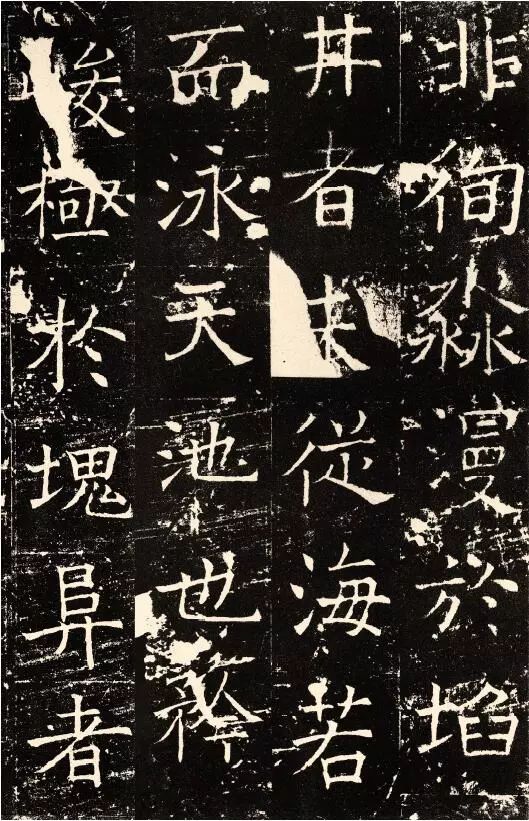 非徇淼漫於埳
井者未從海若
而泳天池也
峻極於塊阜者